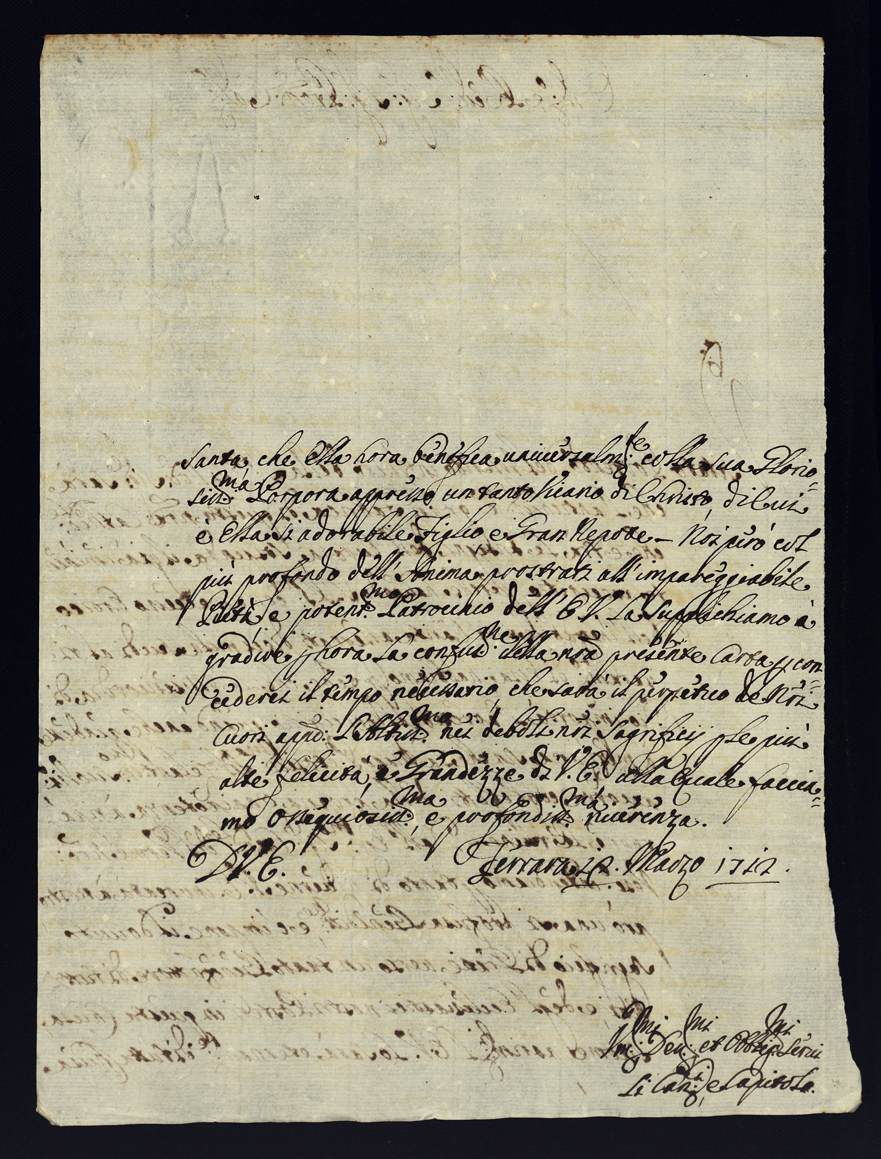 Santa, che Ella hora benefica universalm.te colla sua Glorio-
siss.ma Porpora appresso un tanto Vicario di Christo, di Cui
e Ella sì adorabile Figlio e Gran Nepote – Noi però col
più profondo dell'Anima prostrati all'impareggiabile
Pietà, e potent.mo Patrocinio dell'E V. La supplichiamo à
gradire hora La della nrã presente Carta, con-
cederci il tempo necessario, che sarà il perpetuo de Nri
Cuori app.o L'Altiss.mo nei deboli nri Sagrificij p Le più
alte felicità, e Grandezze di V. E. alla Quale faccia-
mo Ossequiosiss.ma, e profondiss.ma riverenza.
D V. E. Ferrara 12. Marzo 1712.
Devmi et Obblig.mi Servi
Li Can.ci, e Capitolo.